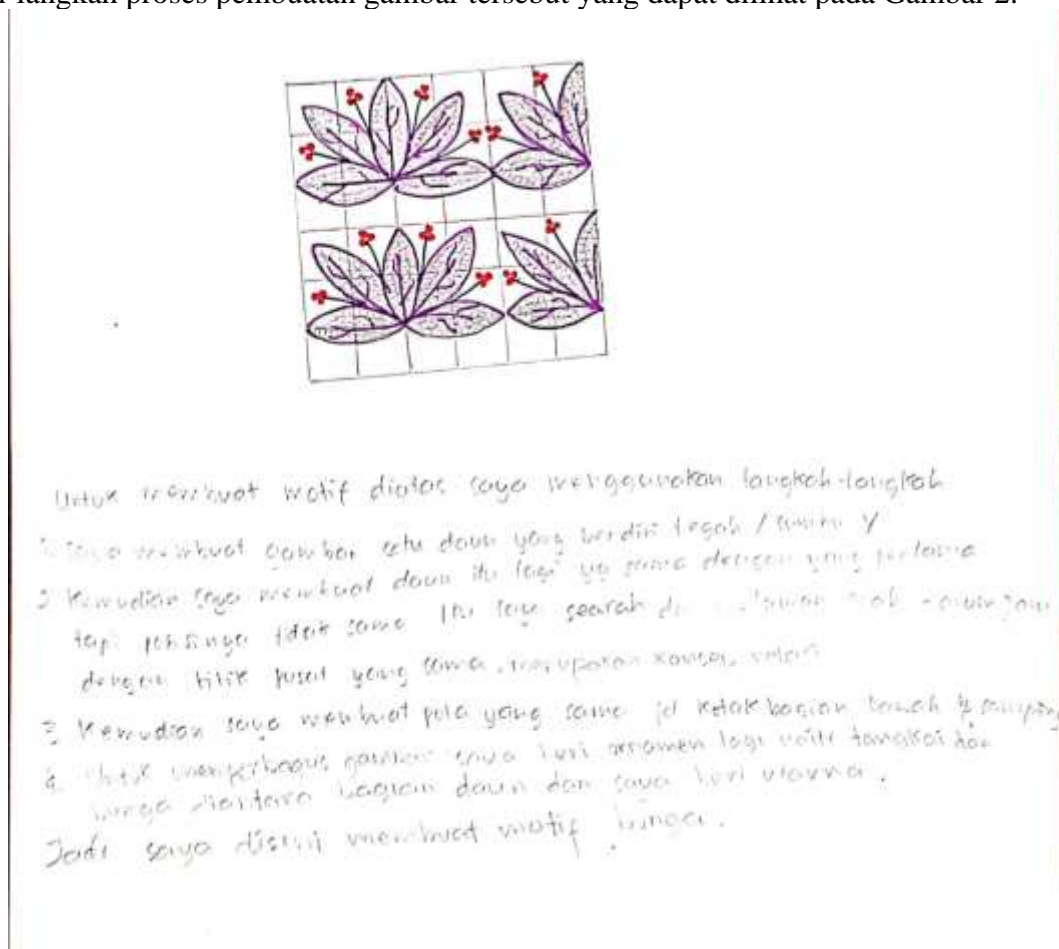 langkah proses pembuatan gambar tersebut yang dapat dilihat pada Gambar 2.
Untuk membuat motif diatas saya menggunakan langkah-langkah
saya membuat gambar satu daun yang berdiri tegak / sumbu Y
Kemudian saya membuat daun itu lagi yg sama dengan yang pertama
tapi posisinya tidak sama searah
dengan titik pusat yang sama, merupakan konsep
3 Kemudian saya membuat pola yang sama kotak bagian bawah & samping
4. Untuk gambar saya beri ornamen lagi tangkai dan
bunga diantara bagian daun dan saya beri warna.
Jadi saya disini membuat motif bunga.